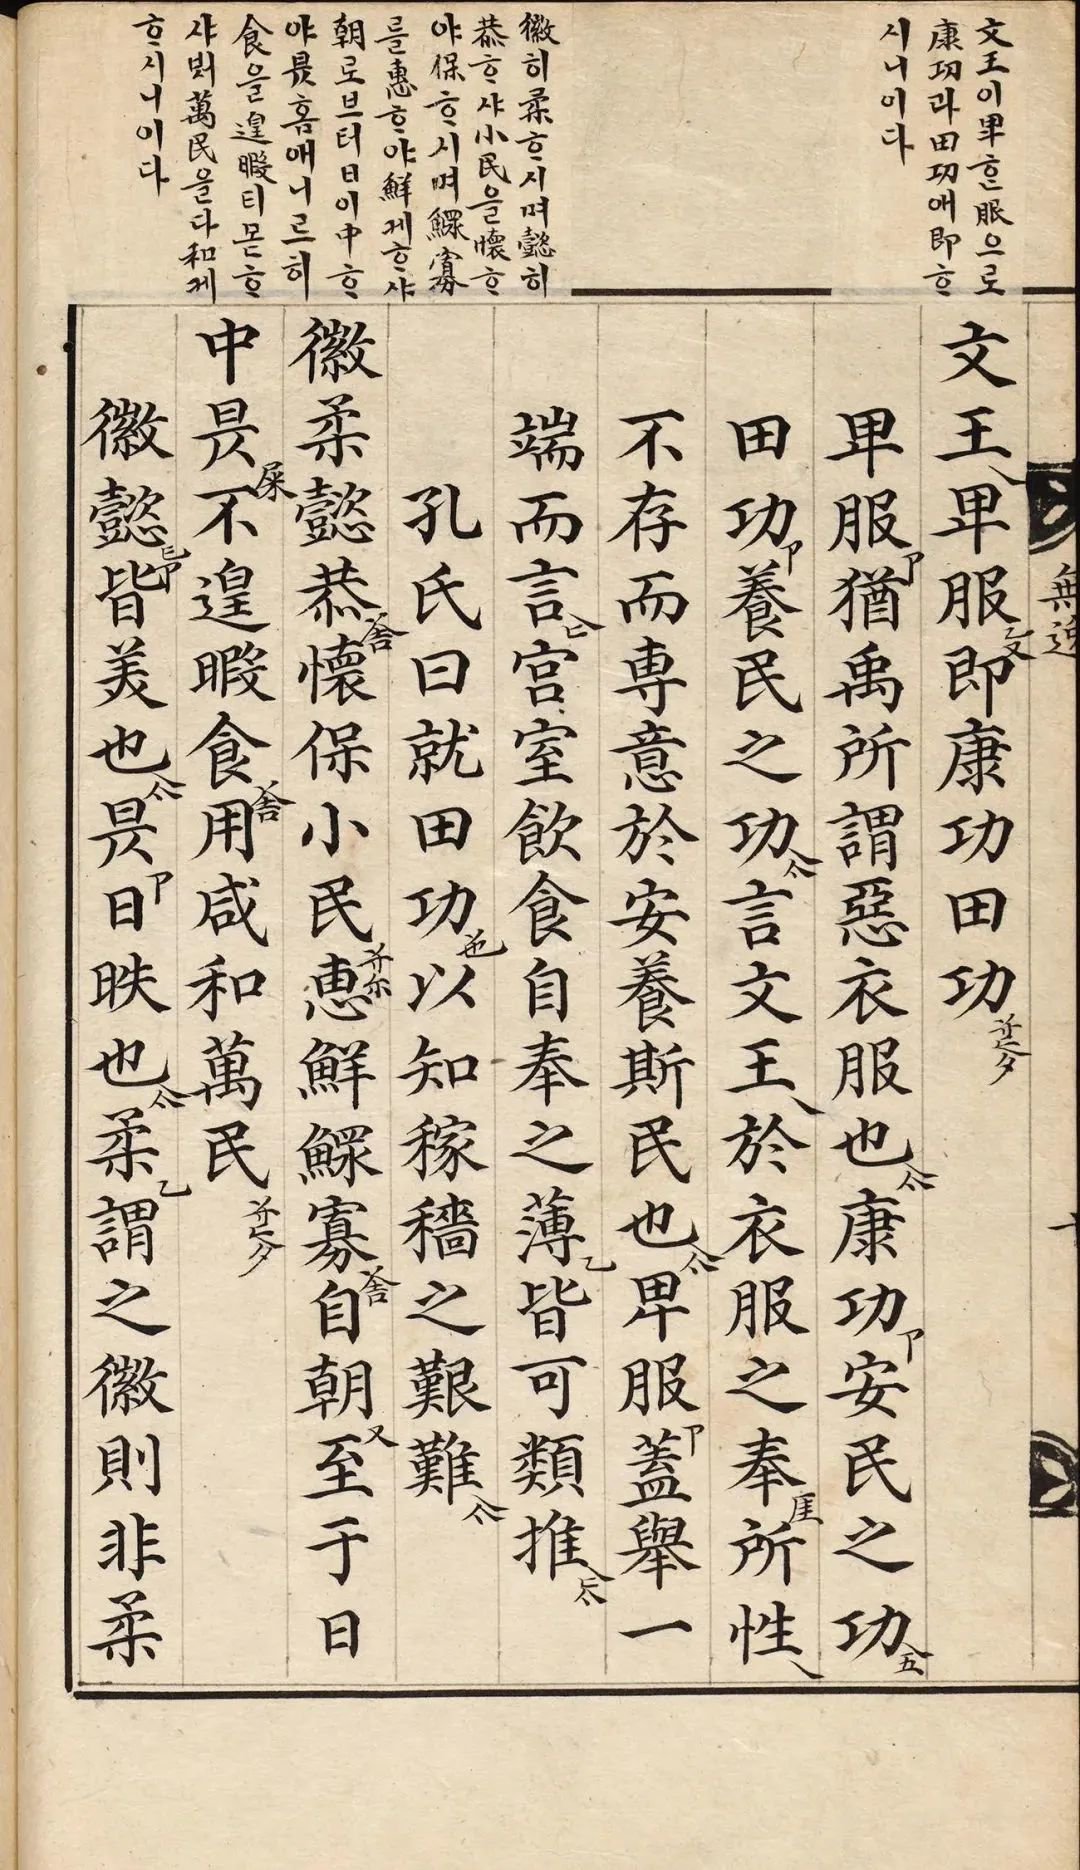 文王이卑ᄒᆞᆫ服으로
康功과田功애即ᄒᆞ
시니이다
徽히柔ᄒᆞ시며懿히
恭ᄒᆞ샤小民을懷ᄒᆞ
야保ᄒᆞ시며鰥寡
를惠ᄒᆞ야鮮게ᄒᆞ샤
朝로브터日이中ᄒᆞ
야昃홈애니르히
食을遑暇티몯ᄒᆞ
샤ᄡᅥ萬民을다和케
ᄒᆞ시니이다
無逸
文王卑服即康功田功
卑服猶禹所謂惡衣服也康功安民之功
田功養民之功言文王於衣服之奉所性
不存而專意於安養斯民也卑服蓋舉一
端而言宮室飲食自奉之薄皆可類推
孔氏曰就田功以知稼穡之艱難
徽柔懿恭懷保小民惠鮮鰥寡自朝至于日
中昃不遑暇食用咸和萬民
徽懿皆美也昃日昳也柔謂之徽則非柔